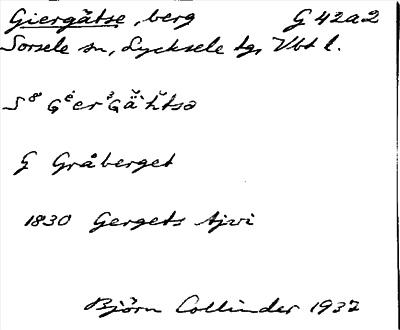 Giergåtse, berg G 42a2
Sorsele sn, Lycksele tgs Vbt l.
G Gråberget
1830 Gergets tjvi
Björn Collinder 1932